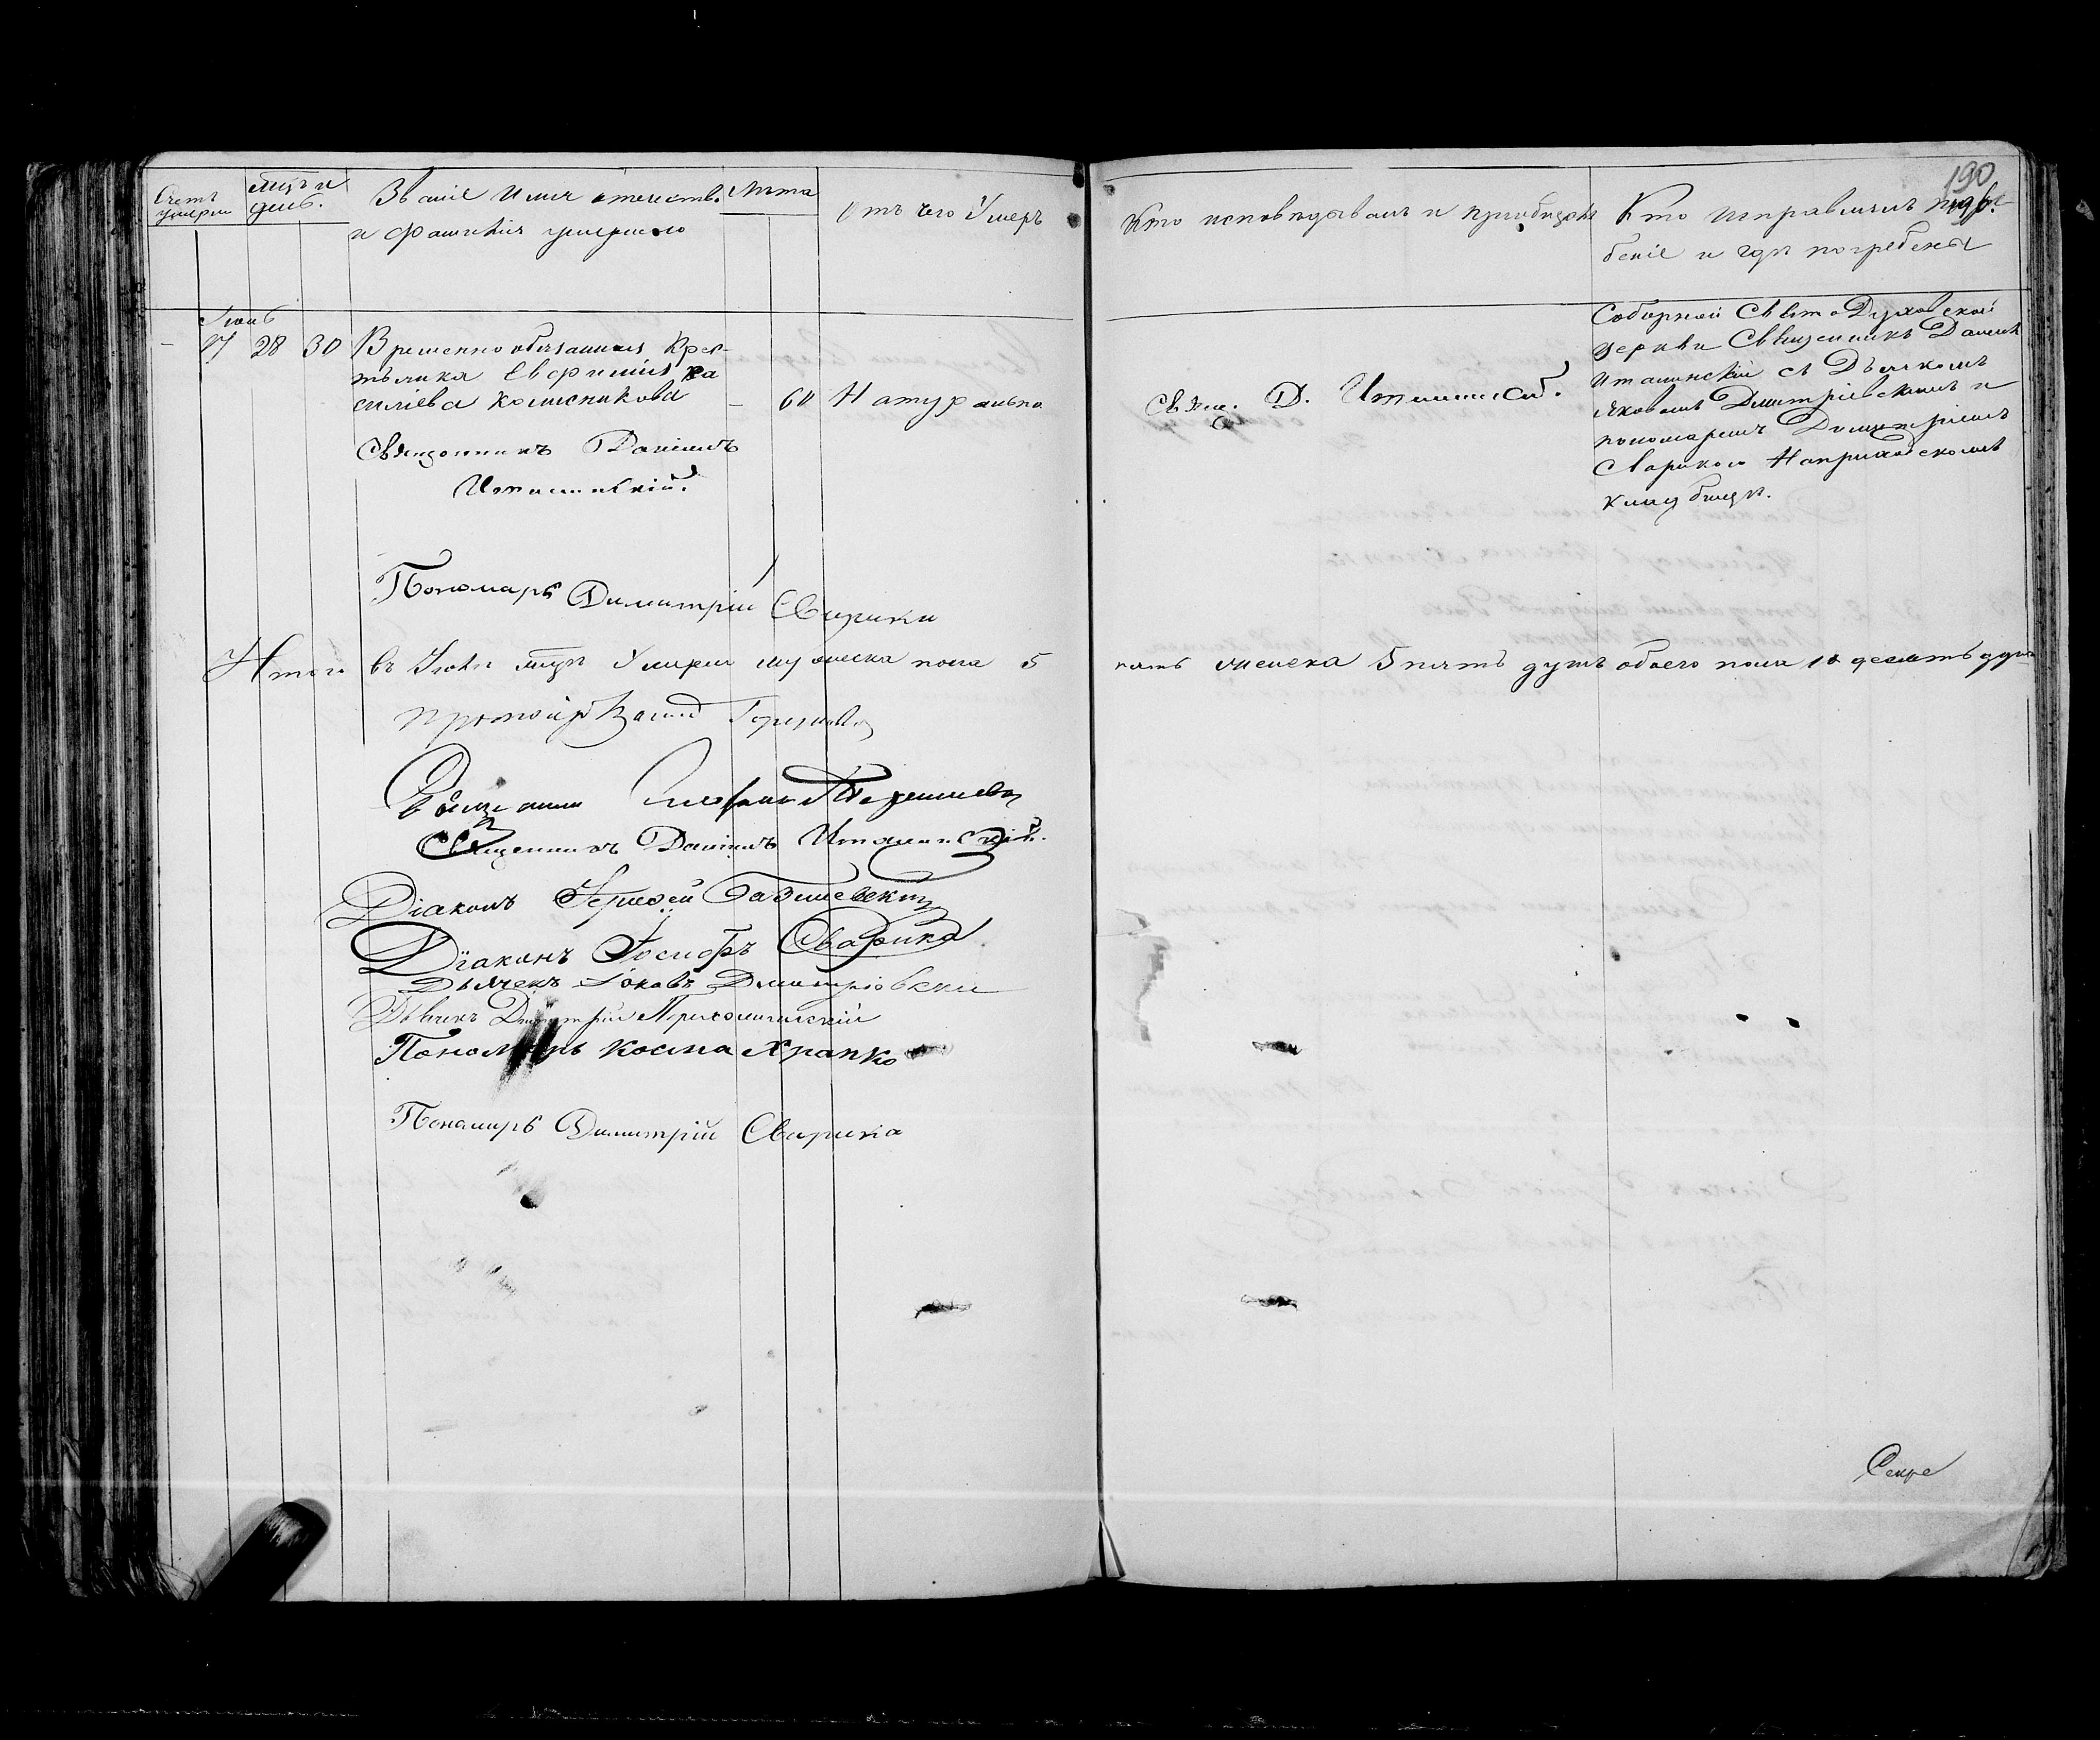 190
Счетъ умерш
мцъ и день.
Званіе Имя отечеств.
и фамилія умершаго
Лѣта
Отъ чего Умеръ
Кто исповѣдывалъ и пріобщалъ
Кто исправлялъ погре
беніе и гдѣ погребены
Іюнь
17 28 30
Временно обязанная Крес
тьянка Евфимія Ва
силіева Колисникова
60
Натурально
Свящ. Д. Италинскій.
Соборной Свято Духовской
церкви Священникъ Даніилъ
Италинскій съ Дьячкомъ
Яковомъ Дмитріевскимъ и
пономаремъ Димитріемъ
Сварикою На приходскомъ
кладбищѣ.
Священникъ Даніилъ
Италинскій.
Пономарь Димитрій Сварика
Итого въ Іюнѣ мцѣ Умерло мужеска пола 5 пять женска 5 пять душъ обоего пола 10 десять душъ
Священникъ Даніилъ Италинскій.
Діаконъ
Діаконъ Іосифъ Сварика
Дьячекъ Іаковъ Дмитріовскій
Дьячекъ Дмитрій
Пономарь Косма Храпко
Пономарь Димитрій Сварика
Секре